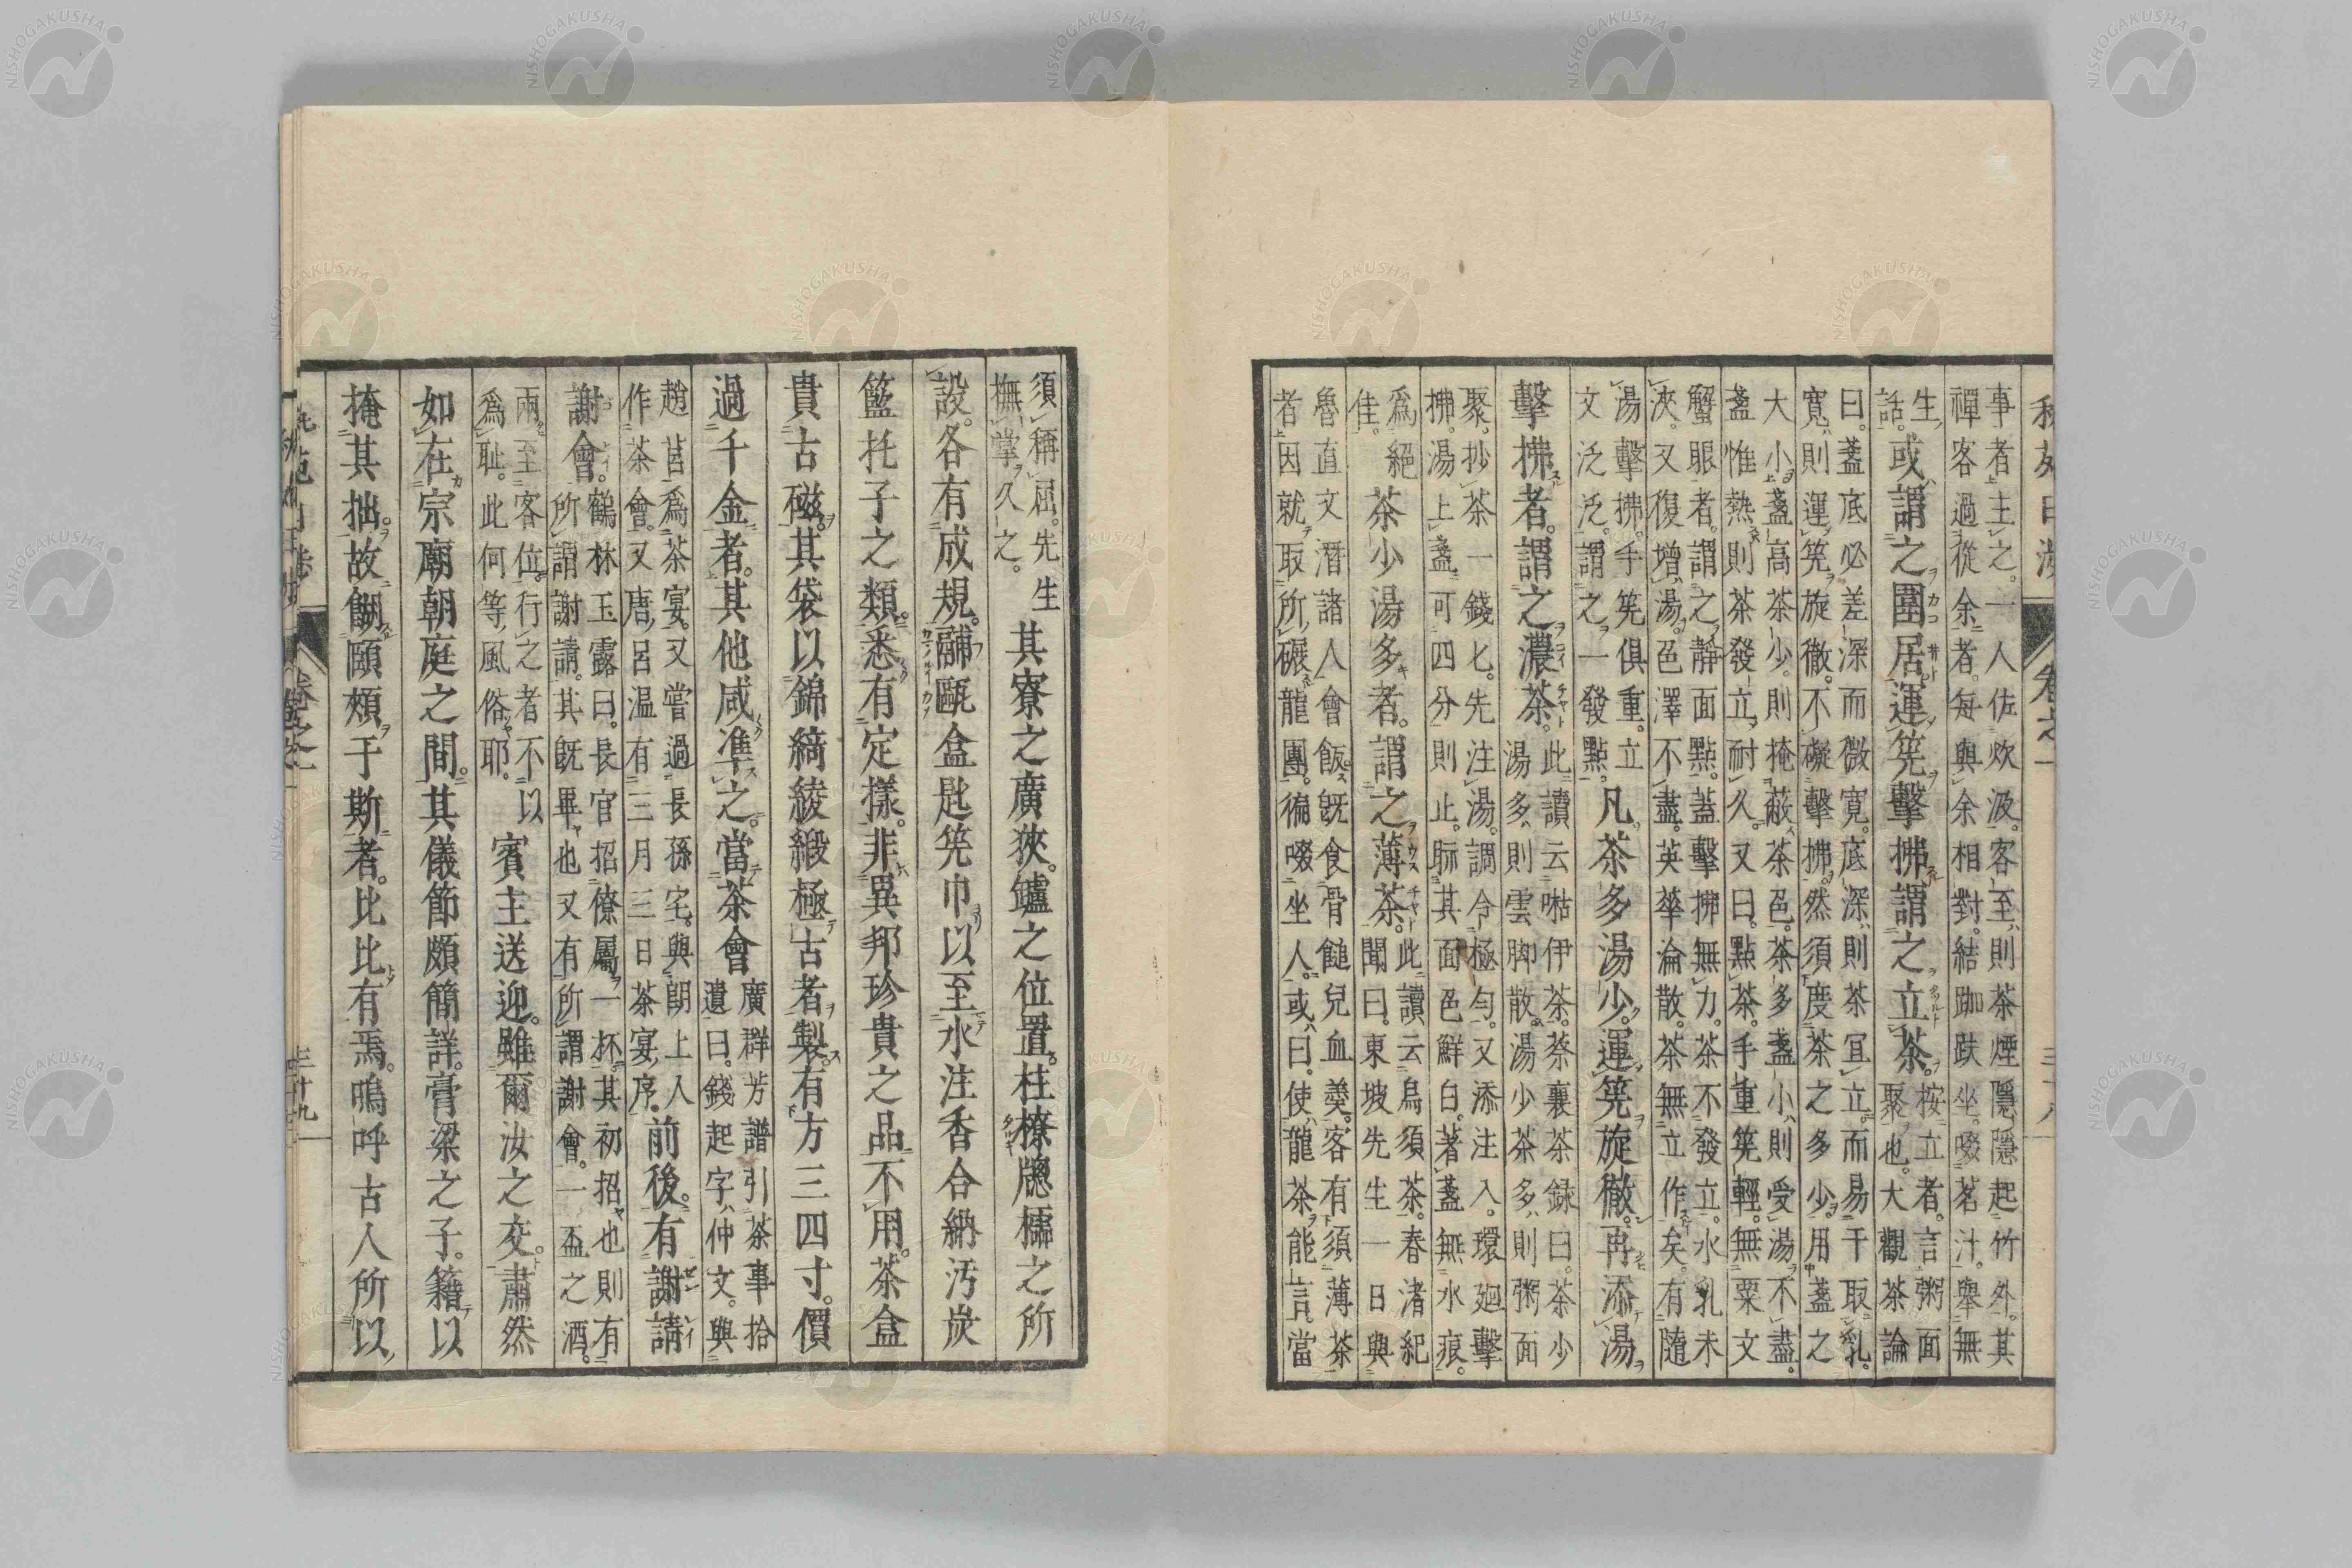 卷之一
事者主之。一人佐炊汲。客至、則茶煙隱隱起竹外。其
禪客過從余者。每與余相對。結跏趺坐。啜茗汁。舉無
生
話。
或謂之圍居運筅擊拂謂之立茶。
按立者。言粥面
聚也。大觀茶論
曰。盞底必差深而微寬。底深、則茶宜立。而易于取乳。
寬、則運筅旋徹。不礙擊拂。然須度茶之多少。用盞之
大小。盞高茶少。則掩蔽茶色。茶多盞小、則受湯不盡。
盞惟熱則茶發立耐久。又曰。點茶。手重筅輕。無粟文
蟹眼者。謂之靜面點。蓋擊拂無力。茶不發立。水乳未
浹。又復增湯。色澤不盡。英華淪散。茶無立作矣。有隨
湯擊拂。手筅俱重。立
文泛泛。謂之一發點。
凡茶多湯少。運筅旋徹。再添湯
擊拂者。謂之濃茶。
此讀云咕伊茶。蔡襄茶録曰。茶少
湯多、則雲脚散。湯少茶多、則粥面
聚。抄茶一錢匕。先注湯。調令極匀。又添注入。環廻擊
拂。湯上盞可四分則止。眎其面色鮮白。著盞無水痕。
爲絕
佳。
茶少湯多者。謂之薄茶。
此讀云烏須茶。春渚紀
聞曰。東坡先生一日與
魯直文潛諸人會飯。旣食骨䭔兒血羹。客有須薄茶
者因就取所碾龍團。徧啜坐人。或曰。使龍茶能言。當
須稱屈。先生
撫掌久之。
其寮之廣狹。鑪之位置。柱橑牕櫺之所
設。各有成規。甌盒匙筅巾以至水注香合納汚炭
籃托子之類。悉有定樣。非異邦珍貴之品不用。茶盒
貴古磁。其袋以錦綺綾緞極古者製。有方三四寸。價
過千金者。其他咸準之。當茶會
廣群芳譜引茶事拾
遺曰。錢起字仲文。與
趙莒爲茶宴。又嘗過長孫宅。與朗上人
作茶會。又唐呂温有三月三日茶宴序。
前後。有謝請
謝會。
鶴林玉露曰。長官招僚屬一杯。其初招也則有
所謂謝請。其旣畢也又有所謂謝會。一盃之酒。
兩至客位。行之者不以
爲耻。此何等風俗耶。
賓主送迎。雖爾汝之交。肅然
如在宗廟朝庭之間。其儀節頗簡詳。膏粱之子。籍以
掩其拙。故餬頤頰于斯者。比比有焉。嗚呼古人所以
卷之一
三十九